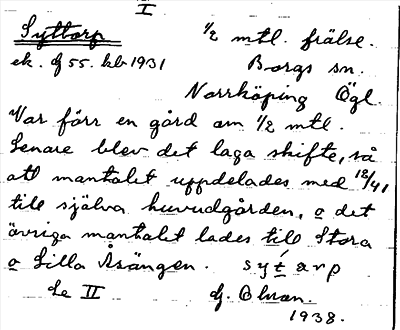 I
Syttorp 1/2 mtl. frälse.
ek. bl 55. kbr 1931 Borgs sn.
Norrköping Ögl.
Var förr en gård om 1/2 mtl.
Senare blev det laga skifte, så
att mantalet uppdelades med 12/41
till själva huvudgården, o det
övriga mantalet lades till Stora
o Lilla Åsängen. sytarp
Se II G. Olsson.
1938.